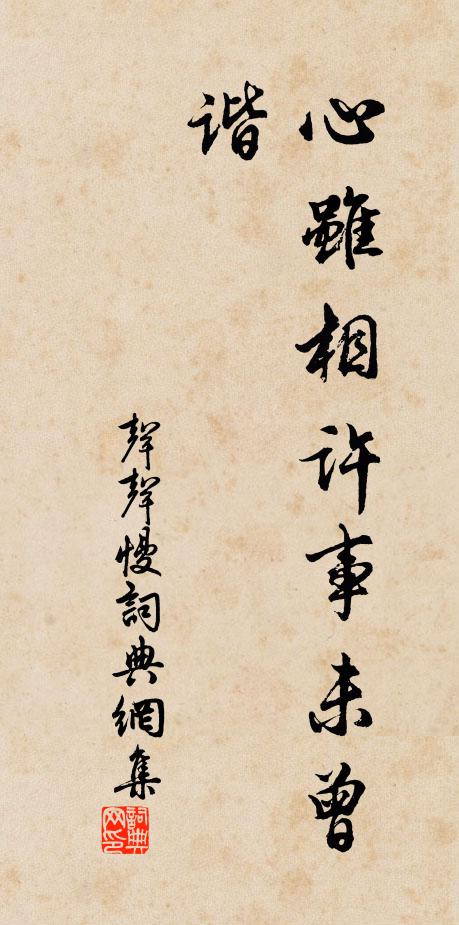 心雖相許事未曾
諧
聲聲慢詞典網集
詞典
网印